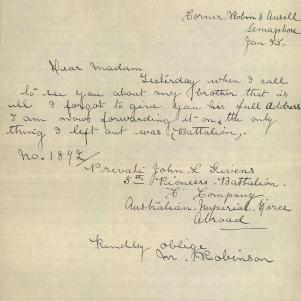 Corner Robin & Ansell
Semaphore
Jan 25.
Dear Madam
Yesterday when I call
to see you about my brother that is
ill I forgot to give you his full Address
I am now forwarding it on, the only
thing I left out was Battalion,
No. 1897
Private John L Givens
5th Pioneers Battalion.
C Company
Australian Imperial Force
Abroad
Kindly oblige
M. Robinson